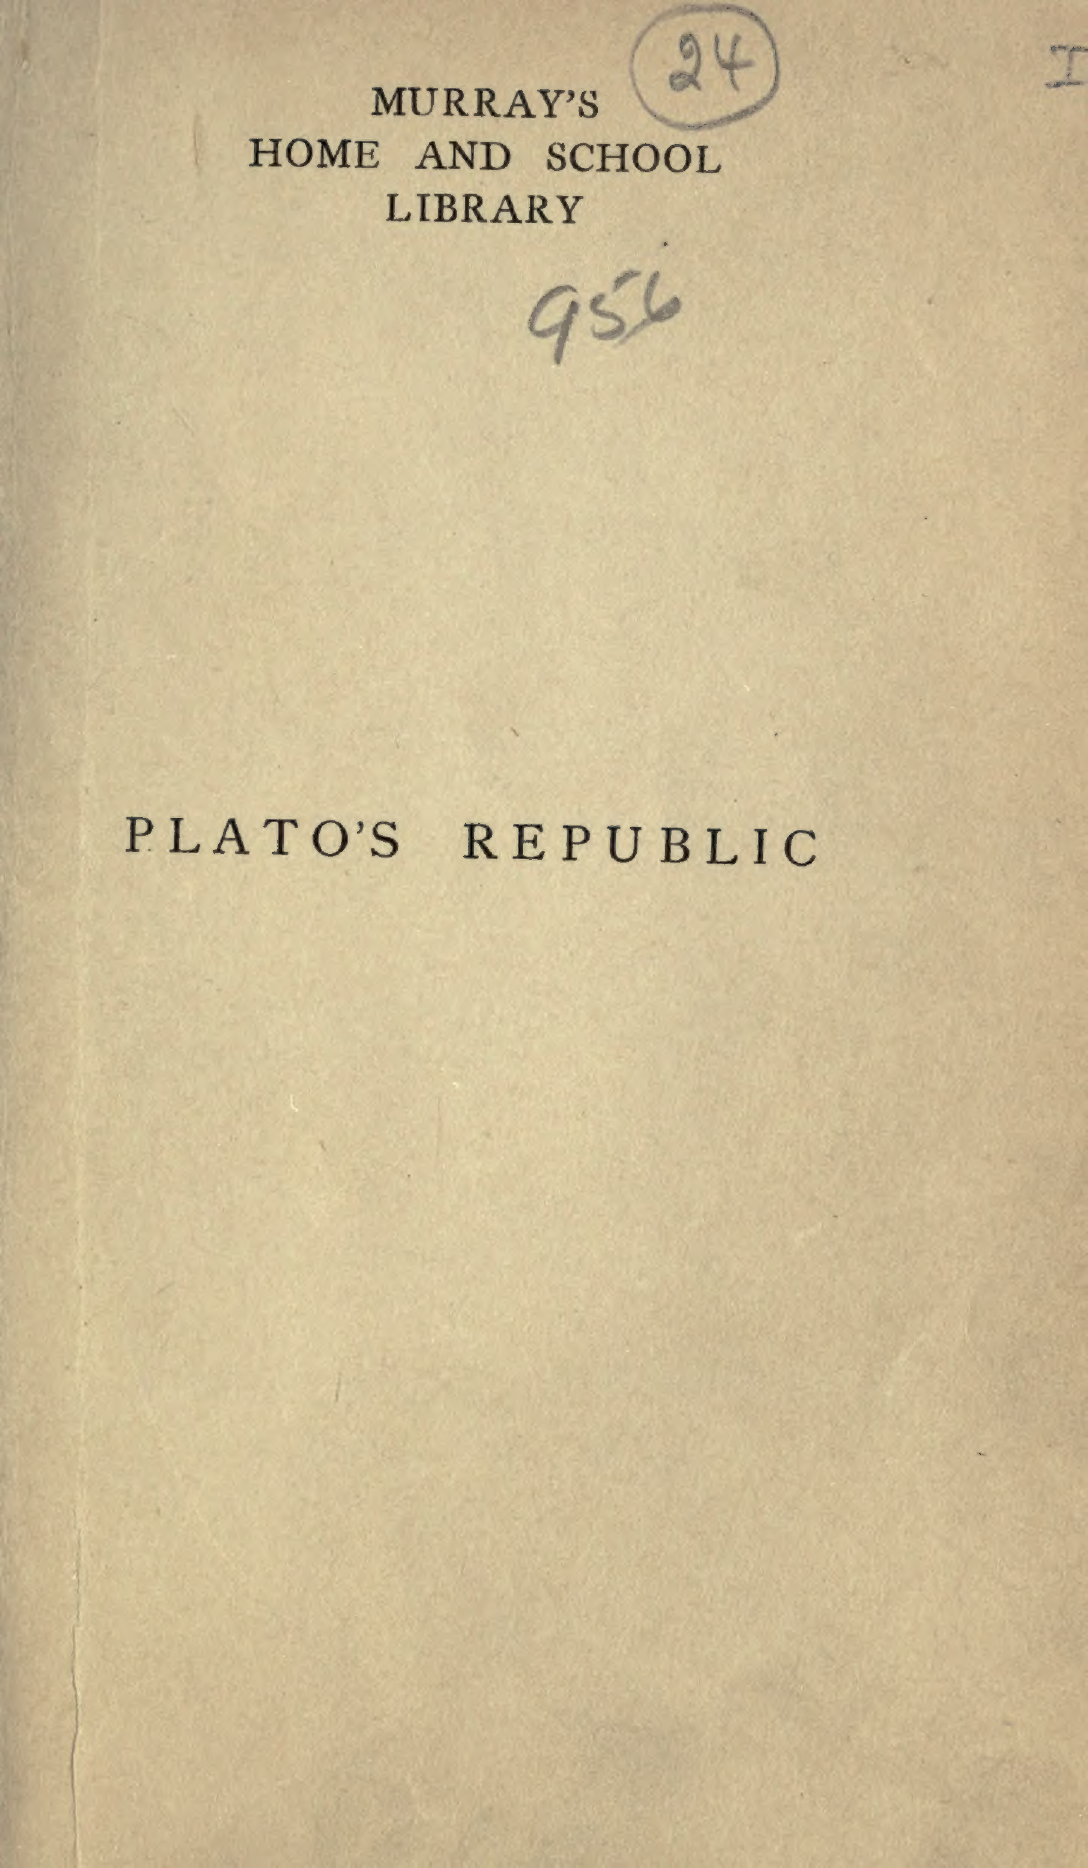 24
I
MURRAY'S
HOME AND SCHOOL
LIBRARY
956
PLATO'S REPUBLIC